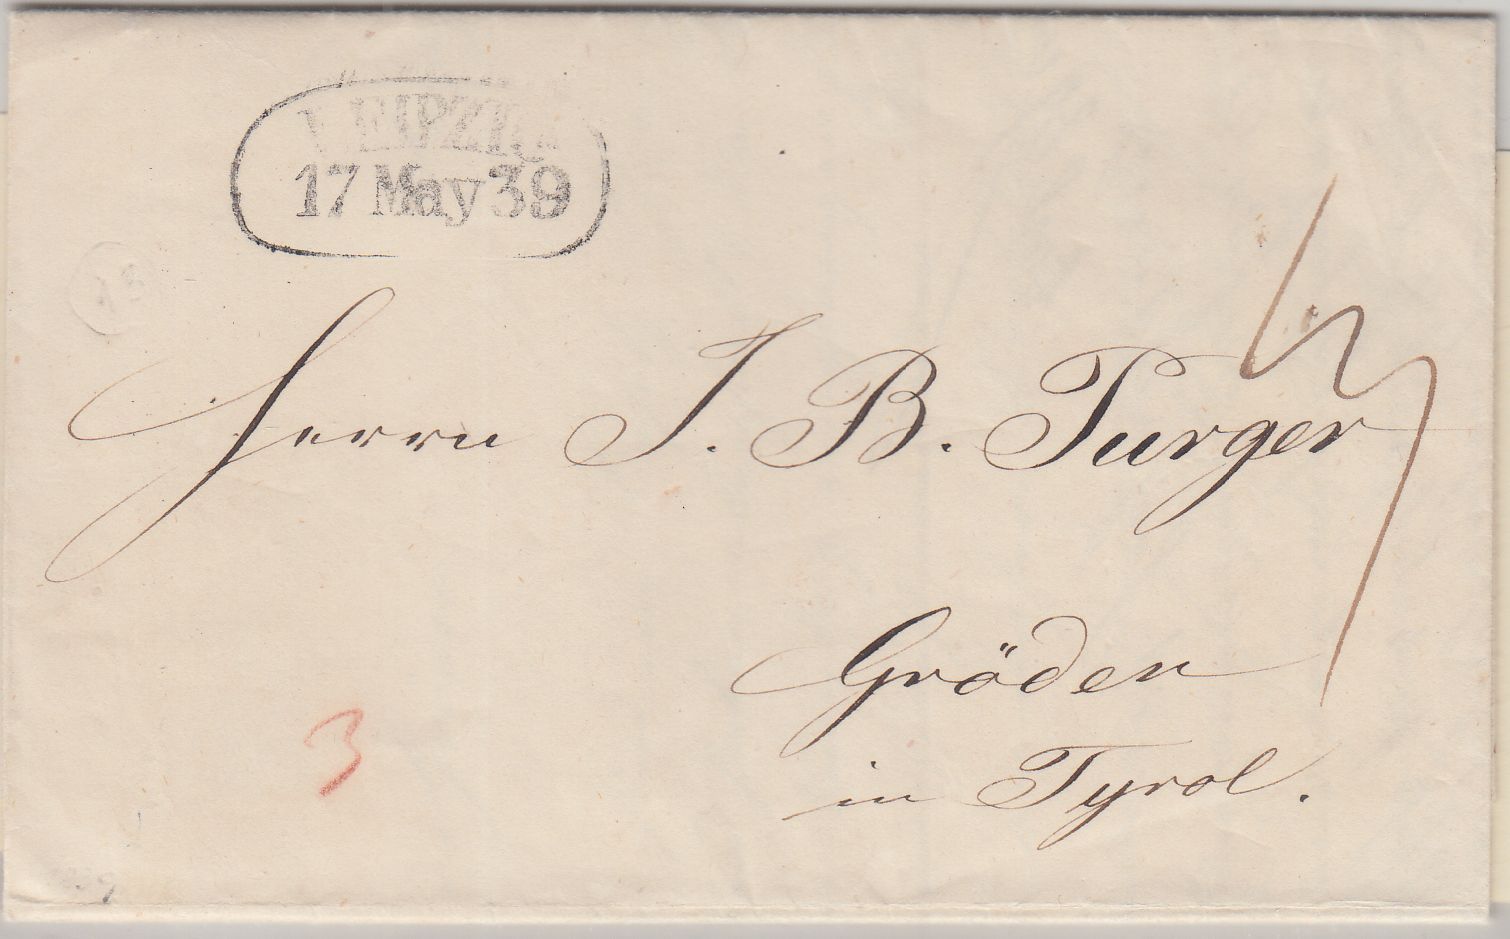 LEIPZIG
17 May 39
Herrn J. B. Purger
Gröden
in Tyrol.
3